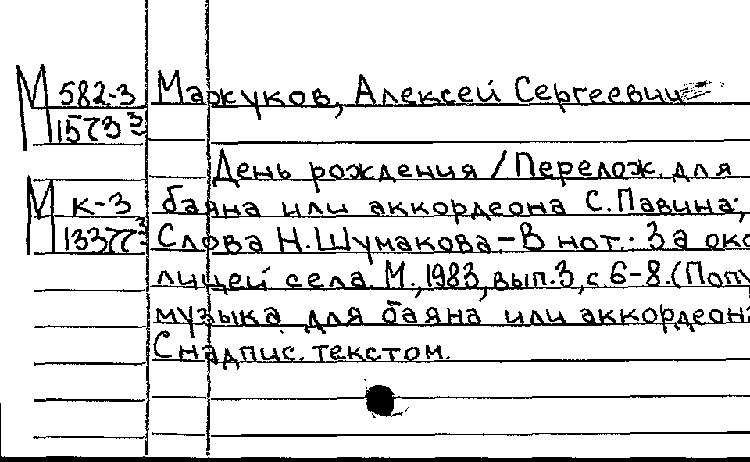 М 582-3 Мажуков, Алексей Сергеевич
1573
День рождения / Перелож. для
М к-3 баяна или аккордеона С. Павина;
Слова Н. Шумакова.- В нот.: За око
лицей села. М., 1983, вып. 3, с. 6-8. (Попу
музыка для баяна или аккордеона
С надпис. текстом.